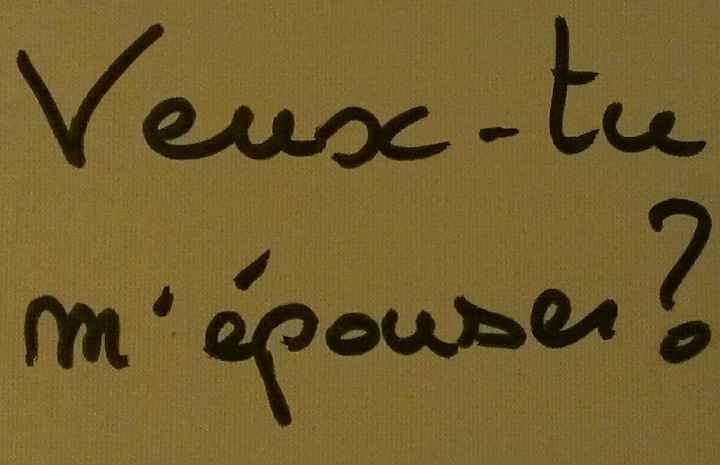 Veux-tu
m'épouser?